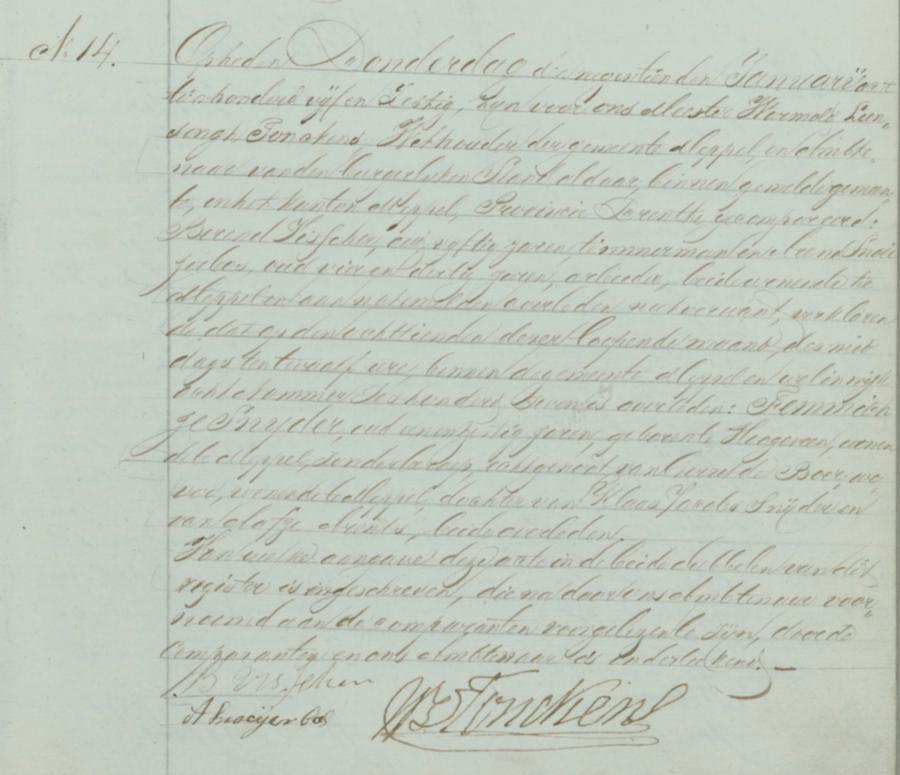 N. 14.
Op heden Donderdag den negentienden Januarij acht
tienhonderd vijf en Zestig, zijn voor ons Meester Warmold Lun
singh Tonckens, Wethouder der gemeente Meppel, en Ambte
naar van den burgerlijken Stand aldaar, binnen gemelde gemeen
te, en het kanton Meppel, Provincie Drenthe gecompareerd:
Berend Visscher, oud vijftig jaren, timmerman en Arend
oud vier en dertig jaren, arbeider, beide wonende te
Meppel en aan na te melden overleden niet verwant, verklaren
de dat op den achttienden dezer loopende maand, des mid
dags ten twaalf ure, binnen de gemeente Meppel en wel in wijk
acht nommer Zeshonderd Zeven is overleden: Femmich
je Snyder, oud een en zestig jaren, geboren te Hoogeveen, wonen
de te Meppel, zonder beroep, echtgenoot van Berend de Boer,
wonende te Meppel, dochter van Klaas Jacobs Snijder en
van Aafje Arents, beide overleden.
Van welke aangave deze acte in de beide dubbelen van dit
register is ingeschreven, die na door ons Ambtenaar voor
noemd aan de comparanten voorgelezen te zijn, door de
Comparanten en ons Ambtenaar is onderteekend.
B Visscher
A
WL Tonckens